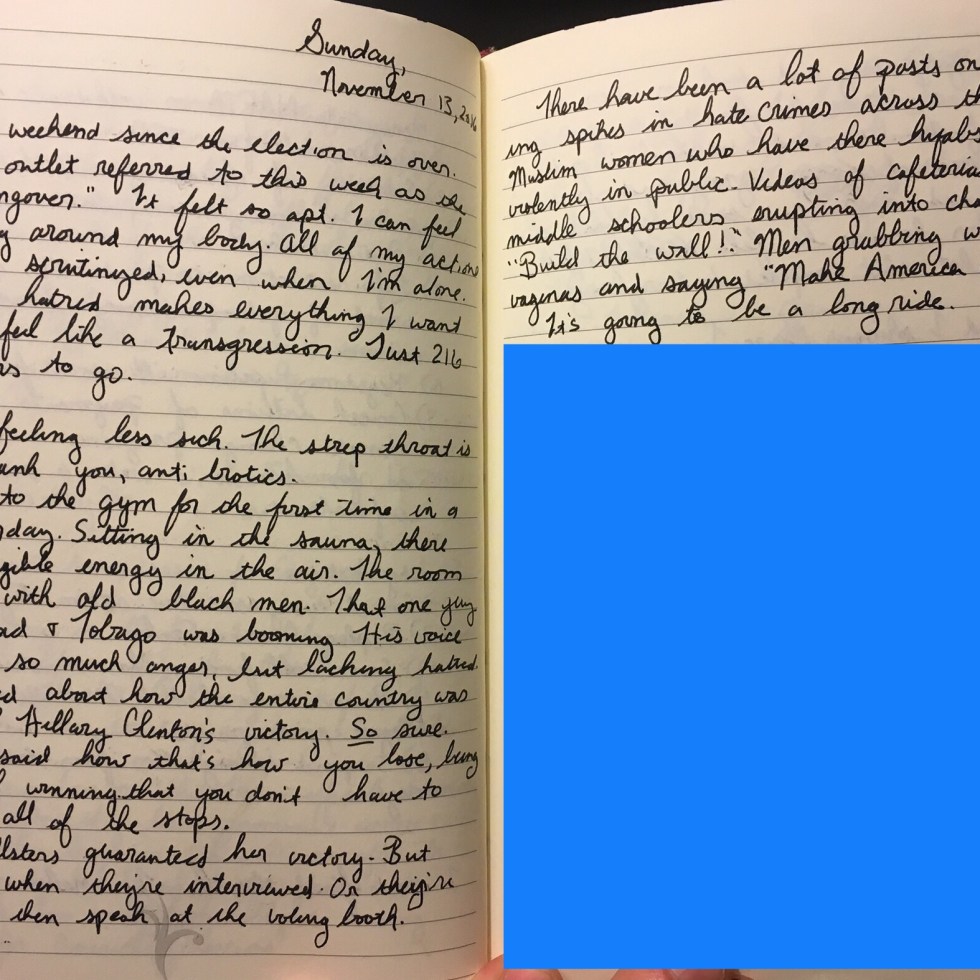 Sunday,
November 13, 2016
weekend since the election is over.
outlet referred to this week as the
ngover." It felt so apt. I can feel
g around my body. All of my action
scrutinized, even when I'm alone.
hatred makes everything I want
feel like a transgression. Just 216
rs to go.
feeling less sick. The strep throat is
ank you, anti biotics.
to the gym for the first time in a
day. Sitting in the sauna, there
gible energy in the air. The room
with old black men. That one guy
ad & Tobago was booming His voice
so much anger, but lacking hatred.
ed about how the entire country was
Hillary Clinton's victory. So sure.
said how that's how you lose, being
winning that you don't have to
all of the stops.
lsters guaranteed her victory. But
when they're interviewed. Or they're
then speak at the voting booth.
There have been a lot of posts on
ing spikes in hate crimes across th
Muslim women who have there hyjabs
violently in public. Videos of cafeteria
middle schoolers erupting into cha
"Build the wall!." Men grabbing w
vaginas and saying "Make America
It's going to be a long ride.